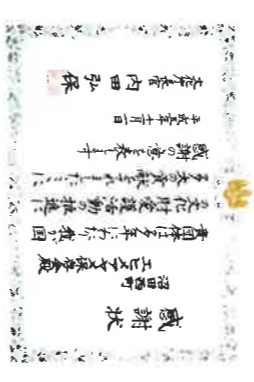 感謝状
沼田西町
エヒメアヤメ保存会殿
貴団体は多年にわたり我が国
の文化財愛護活動の推進に
多大の貢献をされました ここに
感謝の意を表します
平成 年十一月一日
文化庁長官 内田弘保